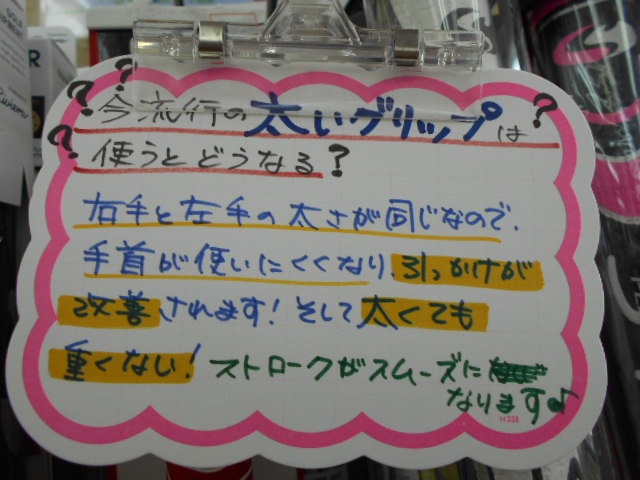 今流行の太いグリップは?
使うとどうなる?
右手と左手の太さが同じなので、
手首が使いにくくなり、引っかけが
改善されます!そして太くても
重くない!ストロークがスムーズに
なります♪
H338